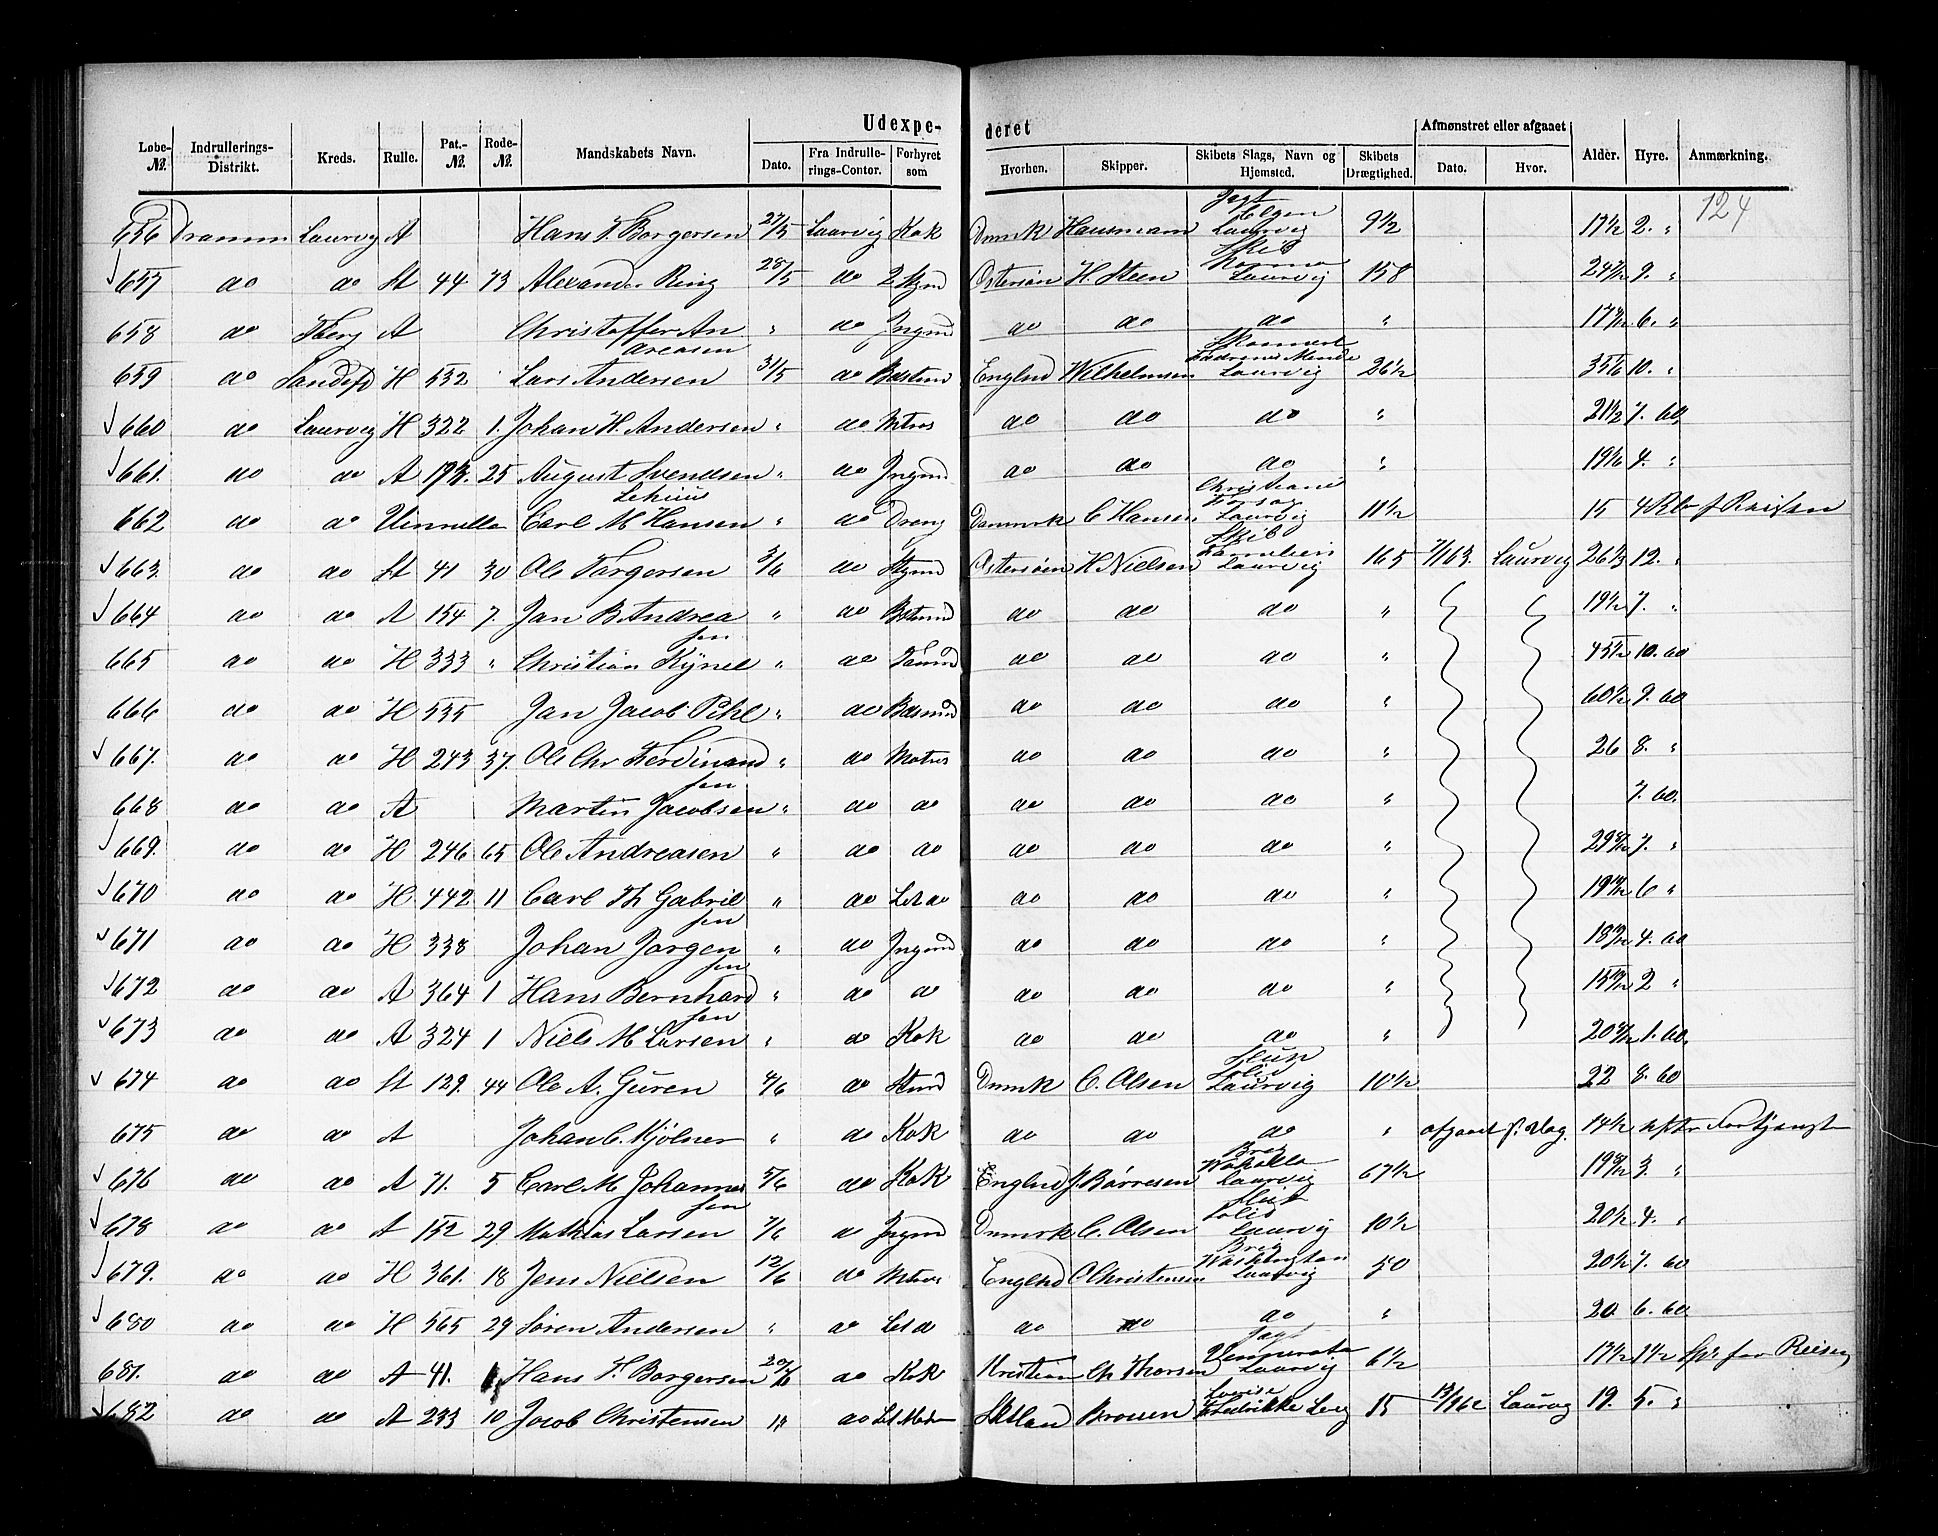 Udexpe- deret
Løbe-№. Indrullerings-Distrikt. Kreds. Rulle. Pat.-№. Rode-№. Mandskabets Navn. Dato. Fra Indrulle-rings-Contor. Forhyret som Hvorhen. Skipper. Skibets Slags, Navn og Hjemsted. Skibets Drægtighed. Afmønstret eller afgaaet Dato. Hvor. Alder. Hyre. Anmærkning.
124
656 Dramm Laurvg A Hans T. Borgersen 27/5 Laurvig Kok Dnmk Hausmann Jagt Laurvig 9½ 17½ 2. "
657 do do St 44 73 Alexander Ring 28/5 do 2 Stymd Østersøn H. Steen Skib Norma Laurvig 158 9. "
658 do Tberg A Christoffer Andreasen " do Jngmd do do do " 6. "
659 do Sandefd H 532 Lars Andersen 31/5 do England Wilhelmsen Laurvig 26½ 10. "
660 do Laurvig H 322 1. Johan H. Andersen " do Mtros do do do " 21½ 7. 60
661. do do A 25 August Svendsen " do Jngmd do do do " 4. "
662 do do Carl M Hansen " do Dreng Danmrk C Hansen Christiane Forsøg Laurvig 11½ 15 4
663. do do St 41 30 Ole Torgersen 3/6 do Stymd Østersøen H Nielsen Skib Familien Laurvig 165 Laurvig 12. "
664 do do A 154 7. Jan B. Andreasen " do Bstmd do do do " 19½ 7. "
665 do do H 333 " Christian Kynel " do do do do " 10. 60
666 do do H 535 Jan Jacob Pihl " do do do do " 60½ 9. 60
667. do do H 243 37. Ole Chr Ferdinandsen " do Matros do do do " 26 8. "
668 do do A Martin Jacobsen " do do do do do " 7. 60.
669. do do H 246 65 Ole Andreasen " do do do do do " 7. "
670 do do H 442 11 Carl Th Gabrielsen " do Let do do do do " 6 "
671 do do H 338 Johan Jørgensen " do Jngmd do do do " 4. 60
672 do do A 364 1 Hans Bernhardsen " do do do do do " 2 "
673 do do A 324 1 Niels M Larsen " do Kok do do do " 1. 60.
674 do do St 129. 44 Ole A. Guren 4/6 do Stmd Dnmk C. Olsen Slup Solid Laurvig 10½ 22 8. 60
675 do do A Johan C. Kjølner " do Kok do do do " afgaaet 14½ efter Fortjenst
676 do do A 71. 5 Carl M. Johannessen 5/6 do Kok Englnd J. Børresen Brig Walhalla Laurvig 67½ 3. "
678 do do A 152 29. Mathias Larsen 7/6 do Jngmd Dnmrk C. Olsen Solid Laurvig 10½ 20½ 4. "
679. do do H 361. 18 Jens Nielsen 12/6 do Mtros Englnd O Christensen Brig Washington Laurvig 50 20½ 7. 60
680 do do H 565 29 Søren Andersen " do Let do do do do " 20 6. 60
681. do do A 41. Hans T. Borgersen 20/6 do Kok Kristian Ch Thorsen Jagt Laurvig 6½ 17½ 1½ Spd for Reisen
682 do do A 233 10 Jacob Christensen do Let Matr Brosen Lovise Fredrikke Lvig 15 Laurvg 19. 5. "